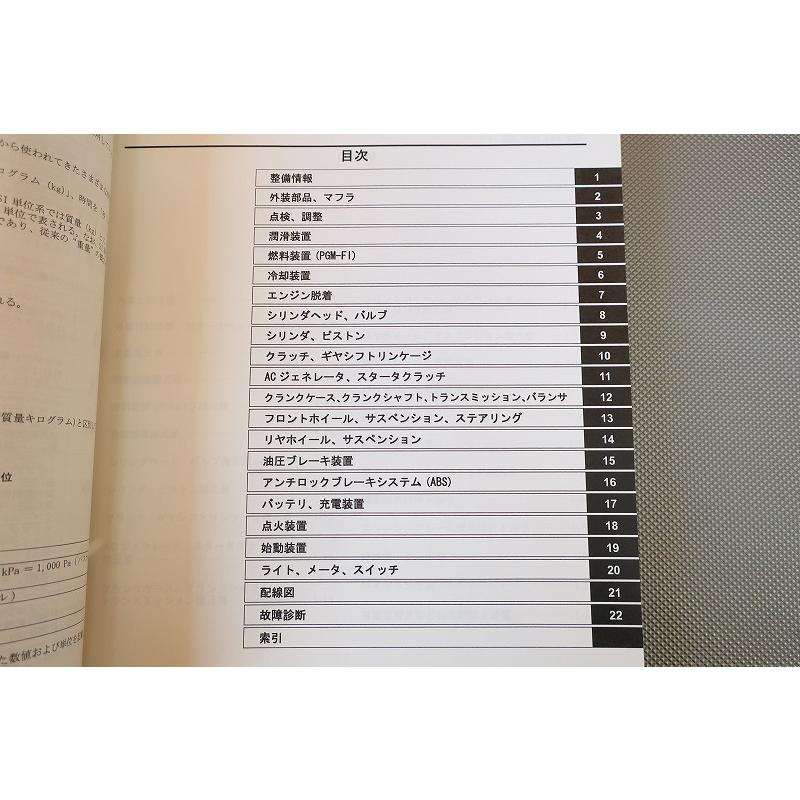 から使われてきたさまざま
ログラム (kg)」、時間を「
SI 単位系では質量 (kg) と
単位で表される。なお、
であり、従来の"重量"の
れる。
質量キログラム)と区別し
位
kPa = 1,000 Pa (パス
ル)
た数値および単位を
目次
整備情報 1
外装部品、マフラ 2
点検、調整 3
潤滑装置 4
燃料装置 (PGM-FI) 5
冷却装置 6
エンジン脱着 7
シリンダヘッド、バルブ 8
シリンダ、ピストン 9
クラッチ、ギヤシフトリンケージ 10
AC ジェネレータ、スタータクラッチ 11
クランクケース、クランクシャフト、トランスミッション、バランサ 12
フロントホイール、サスペンション、ステアリング 13
リヤホイール、サスペンション 14
油圧ブレーキ装置 15
アンチロックブレーキシステム (ABS) 16
バッテリ、充電装置 17
点火装置 18
始動装置 19
ライト、メータ、スイッチ 20
配線図 21
故障診断 22
索引